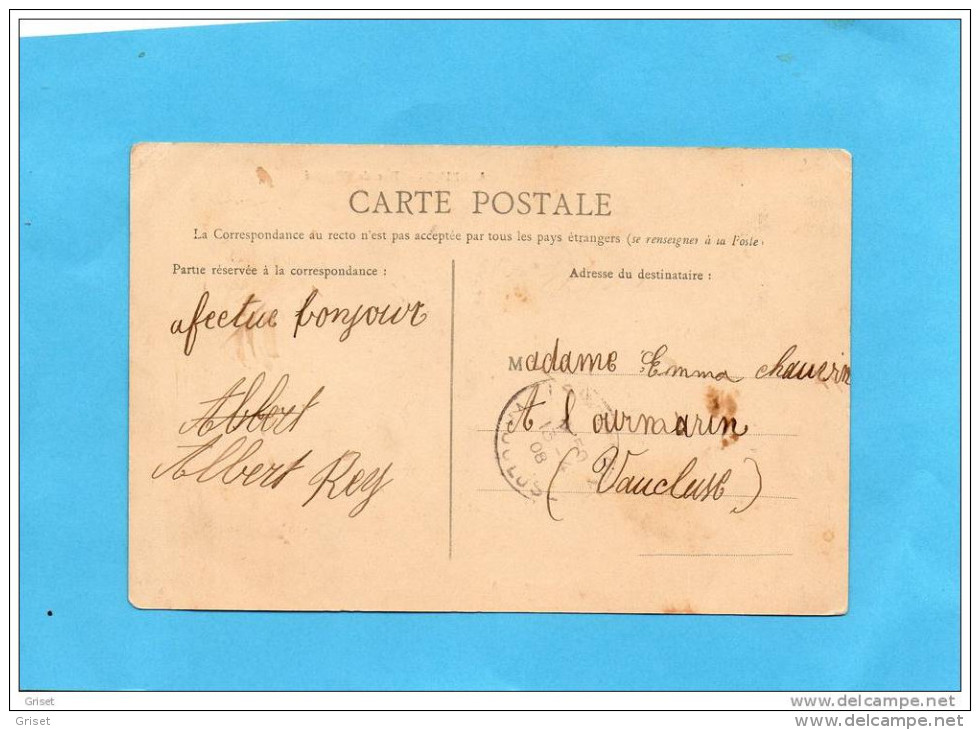 CARTE POSTALE
La Correspondance au recto n'est pas acceptée par tous les pays étrangers (se renseigner à la Poste)
Partie réservée à la correspondance :
afectue bonjour
Albert
Albert Rey
Adresse du destinataire :
Madame Emma Chauvin
A Lourmarin
(Vaucluse)
08
Griset
Griset
www.delcampe.net
www.delcampe.net